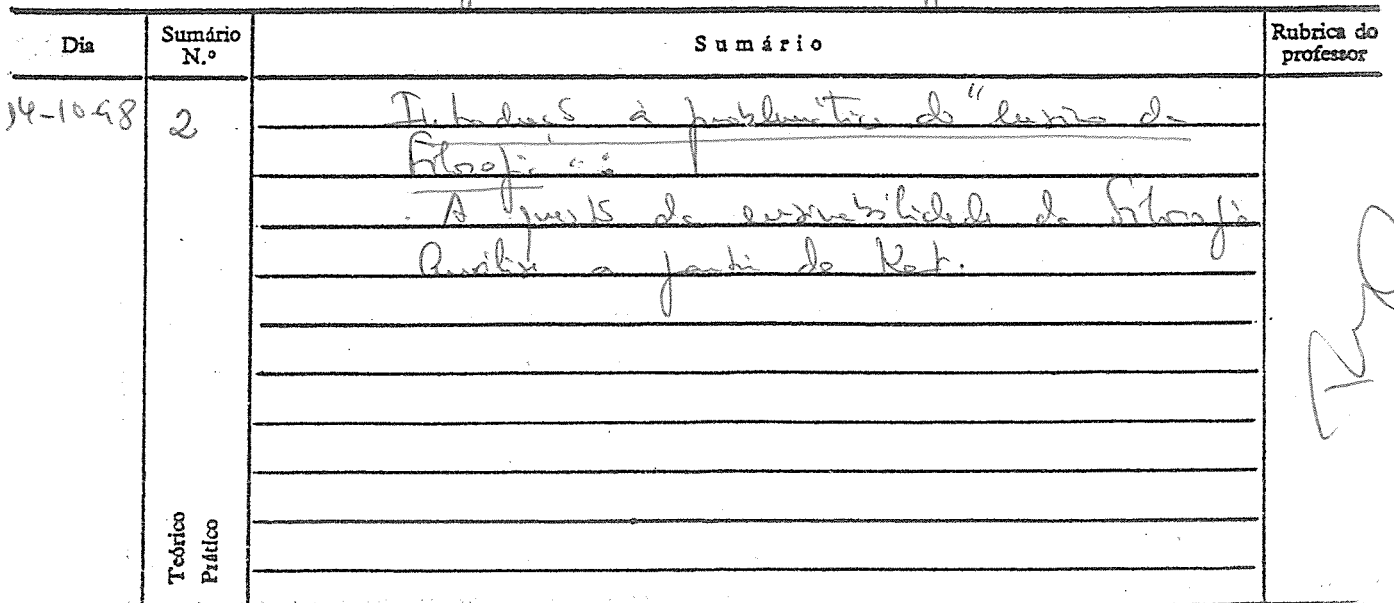 Dia
Sumário N.º
Sumário
Rubrica do professor
14-10-98
2
Introdução à problemática do "ensino da
Filosofia":
. A questão da ensinabilidade da Filosofia
Análise a partir de Kant.
Teórico
Prático